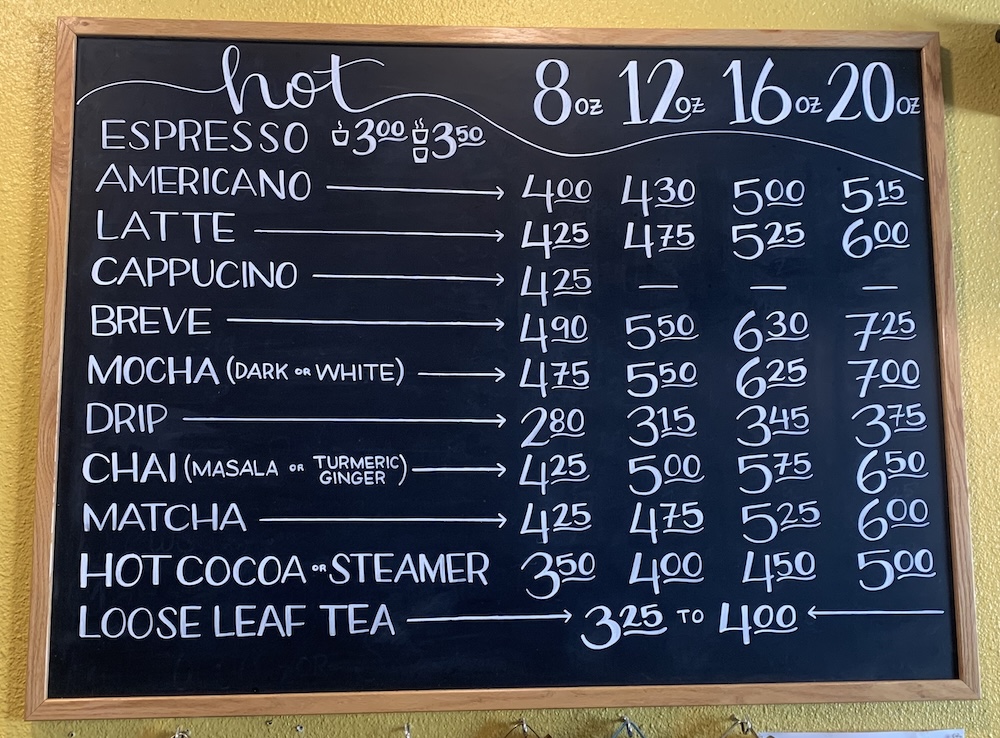 hot 8oz 12oz 16oz 20oz
ESPRESSO 3.00 3.50
AMERICANO 4.00 4.30 5.00 5.15
LATTE 4.25 4.75 5.25 6.00
CAPPUCINO 4.25 — — —
BREVE 4.90 5.50 6.30 7.25
MOCHA (DARK OR WHITE) 4.75 5.50 6.25 7.00
DRIP 2.80 3.15 3.45 3.75
CHAI (MASALA OR TURMERIC GINGER) 4.25 5.00 5.75 6.50
MATCHA 4.25 4.75 5.25 6.00
HOT COCOA OR STEAMER 3.50 4.00 4.50 5.00
LOOSE LEAF TEA 3.25 TO 4.00